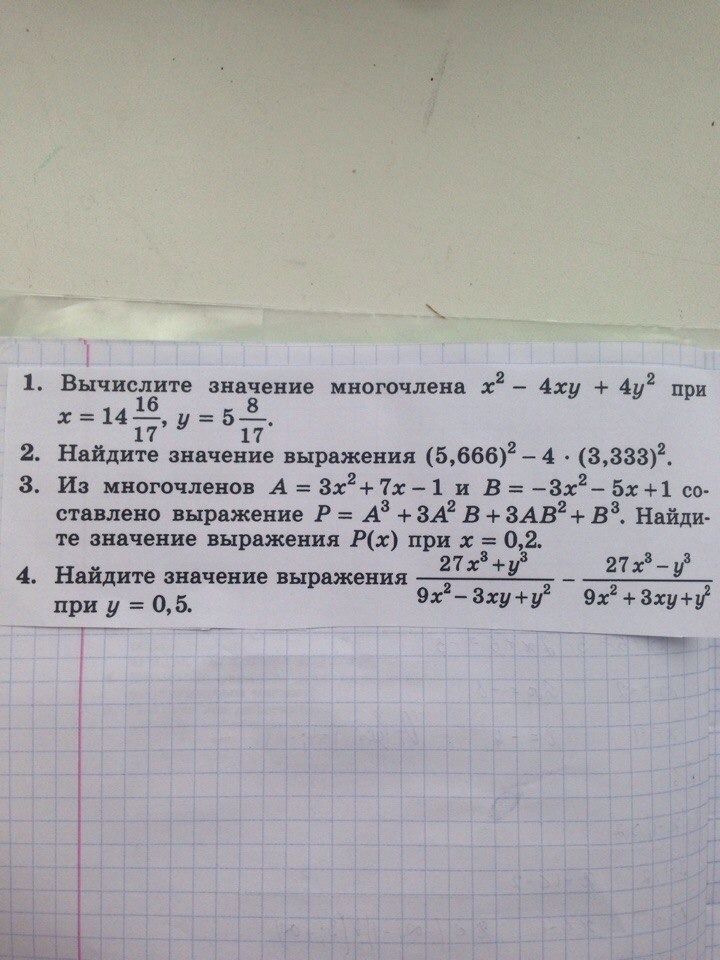 1. Вычислите значение многочлена x² – 4xy + 4y² при
x = 14 16/17, y = 5 8/17.
2. Найдите значение выражения (5,666)² – 4 · (3,333)².
3. Из многочленов A = 3x² + 7x – 1 и B = –3x² – 5x + 1 со-
ставлено выражение P = A³ + 3A² B + 3AB² + B³. Найди-
те значение выражения P(x) при x = 0,2.
4. Найдите значение выражения (27x³ + y³)/(9x² – 3xy + y²) – (27x³ – y³)/(9x² + 3xy + y²)
при y = 0,5.